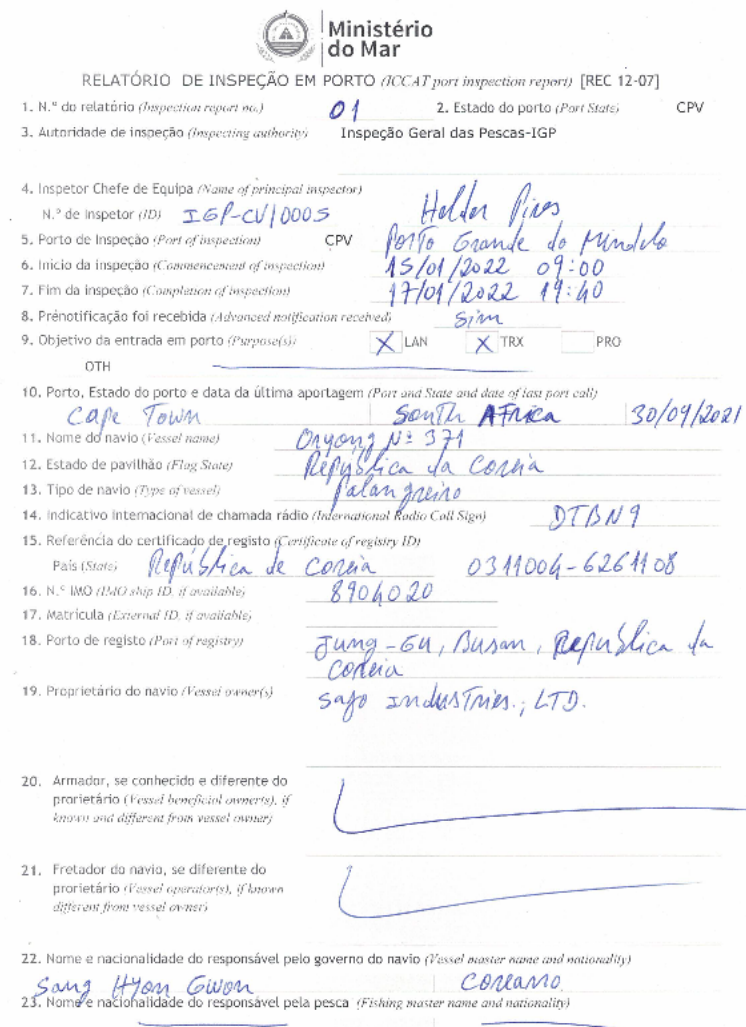 Ministério
do Mar
RELATÓRIO DE INSPEÇÃO EM PORTO (ICCAT port inspection report) [REC 12-07]
1. N.º do relatório (Inspection report no.) 01 2. Estado do porto (Port State) CPV
3. Autoridade de inspeção (Inspecting authority) Inspeção Geral das Pescas-IGP
4. Inspetor Chefe de Equipa (Name of principal inspector)
N.º de Inspetor (ID) IGP-CV/0005 Helder Pires
5. Porto de Inspeção (Port of inspection) CPV Porto Grande do Mindelo
6. Inicio da inspeção (Commencement of inspection) 15/01/2022 09:00
7. Fim da inspeção (Completion of inspection) 17/01/2022 19:40
8. Prénotificação foi recebida (Advanced notification received) Sim
9. Objetivo da entrada em porto (Purpose(s)) X LAN X TRX PRO
OTH
10. Porto, Estado do porto e data da última aportagem (Port and State and date of last port call)
Cape Town South Africa 30/09/2021
11. Nome do navio (Vessel name) Oryong Nº 371
12. Estado de pavilhão (Flag State) República da Coreia
13. Tipo de navio (Type of vessel) Palangreiro
14. Indicativo Internacional de chamada rádio (International Radio Call Sign) DTBN9
15. Referência do certificado de registo (Certificate of registry ID)
País (State) República de Coreia 0311004-6261108
16. N.º IMO (IMO ship ID, if available) 8904020
17. Matricula (External ID, if available)
18. Porto de registo (Port of registry) Jung-Gu, Busan, República da
Coreia
19. Proprietário do navio (Vessel owner(s)) Sajo Industries., LTD.
20. Armador, se conhecido e diferente do
prorietário (Vessel beneficial owner(s), if
known and different from vessel owner)
21. Fretador do navio, se diferente do
prorietário (Vessel operator(s), if known
different from vessel owner)
22. Nome e nacionalidade do responsável pelo governo do navio (Vessel master name and nationality)
Sang Hyon Gwon Coreano
23. Nome e nacionalidade do responsável pela pesca (Fishing master name and nationality)